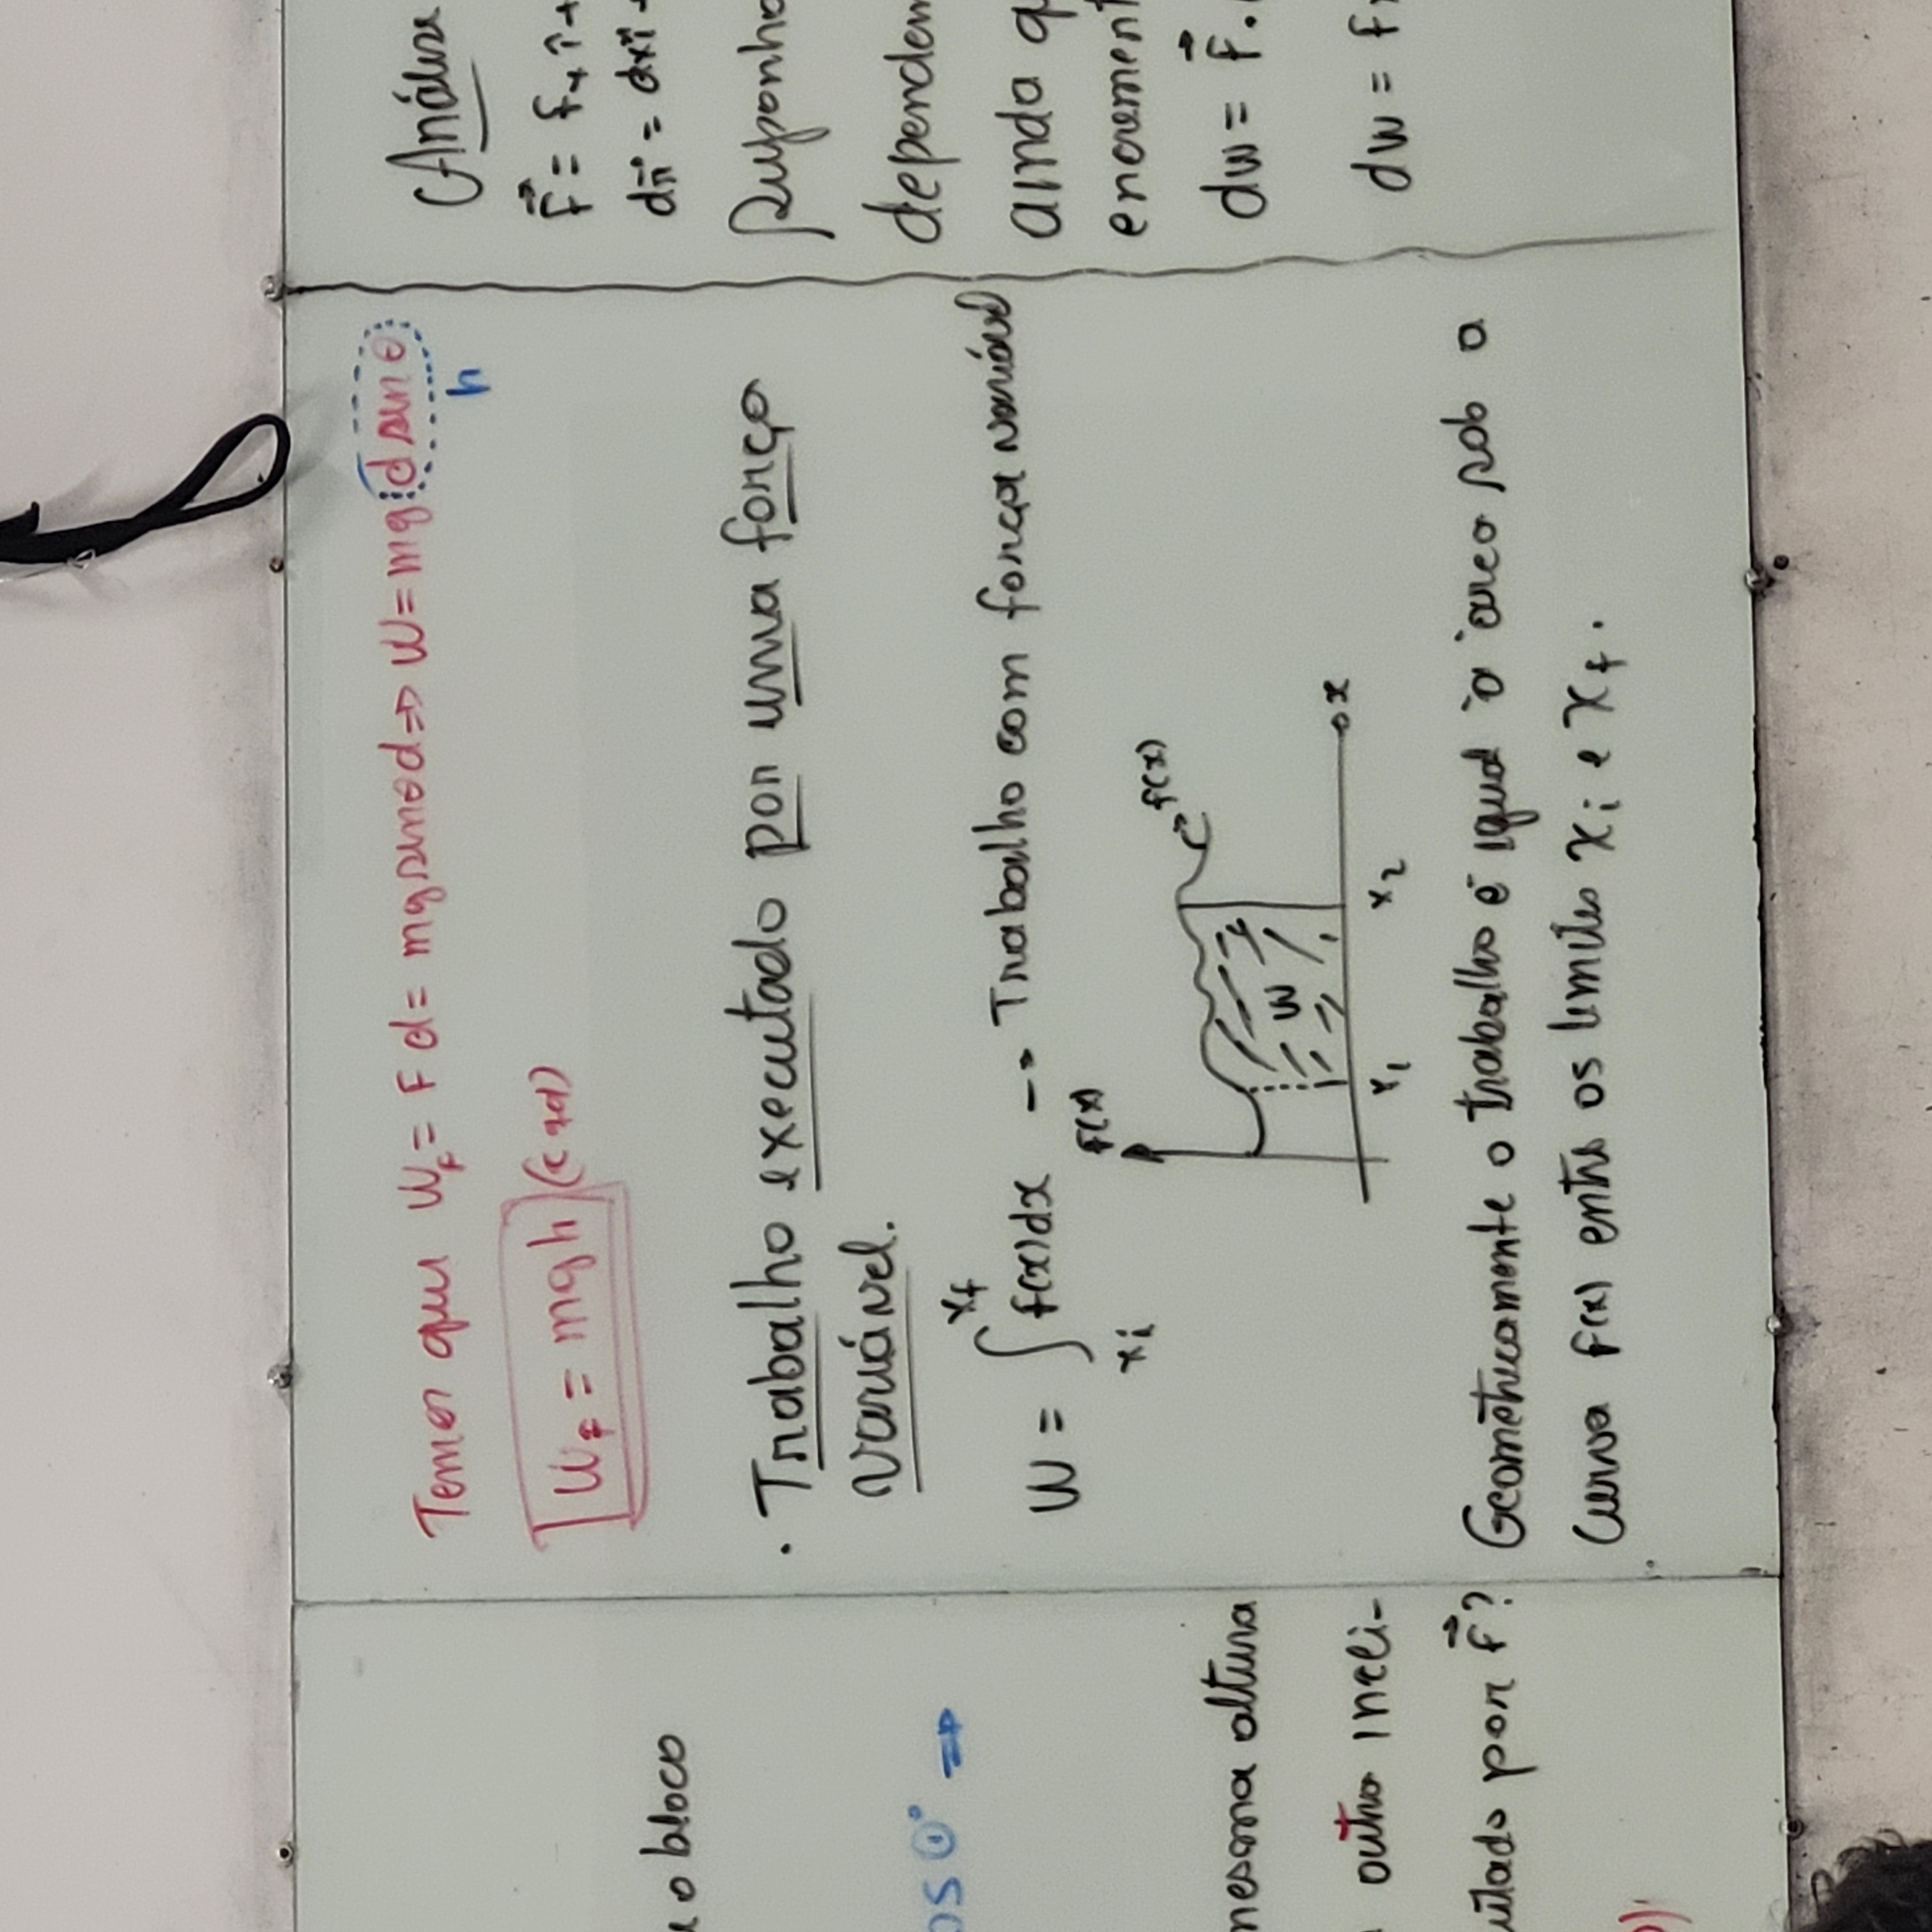 o bloco
os 0° ⇒
mesma altura
outro incli-
utado por F⃗?
Temos que W_F = F d = mg senθ d ⇒ W = mg d sen θ
h
W_F = mgh (c qd)
. Trabalho executado por uma força
variável.
W = ∫ f(x)dx --> Trabalho com força variável
xf
xi
F(x)
F(x)
W
x
x₁
x₂
Geometricamente o trabalho é igual à área sob a
Curva F(x) entre os limites xi e xf.
Análise
F⃗ = Fx î +
dr⃗ = dx î +
Suponha
dependem
ainda q
encrement
dW = F⃗ .
dW = F